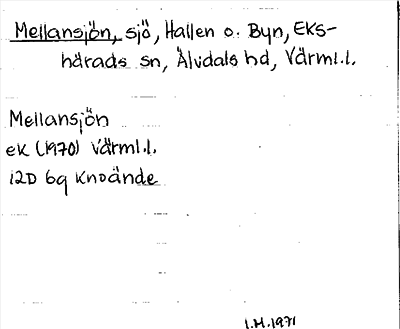 Mellansjön, sjö, Hallen o. Byn, Eks-
härads sn, Älvdals hd, Värml.l.
Mellansjön
ek (1970) Värml.l.
12D 6g Knoände
I.H.1971